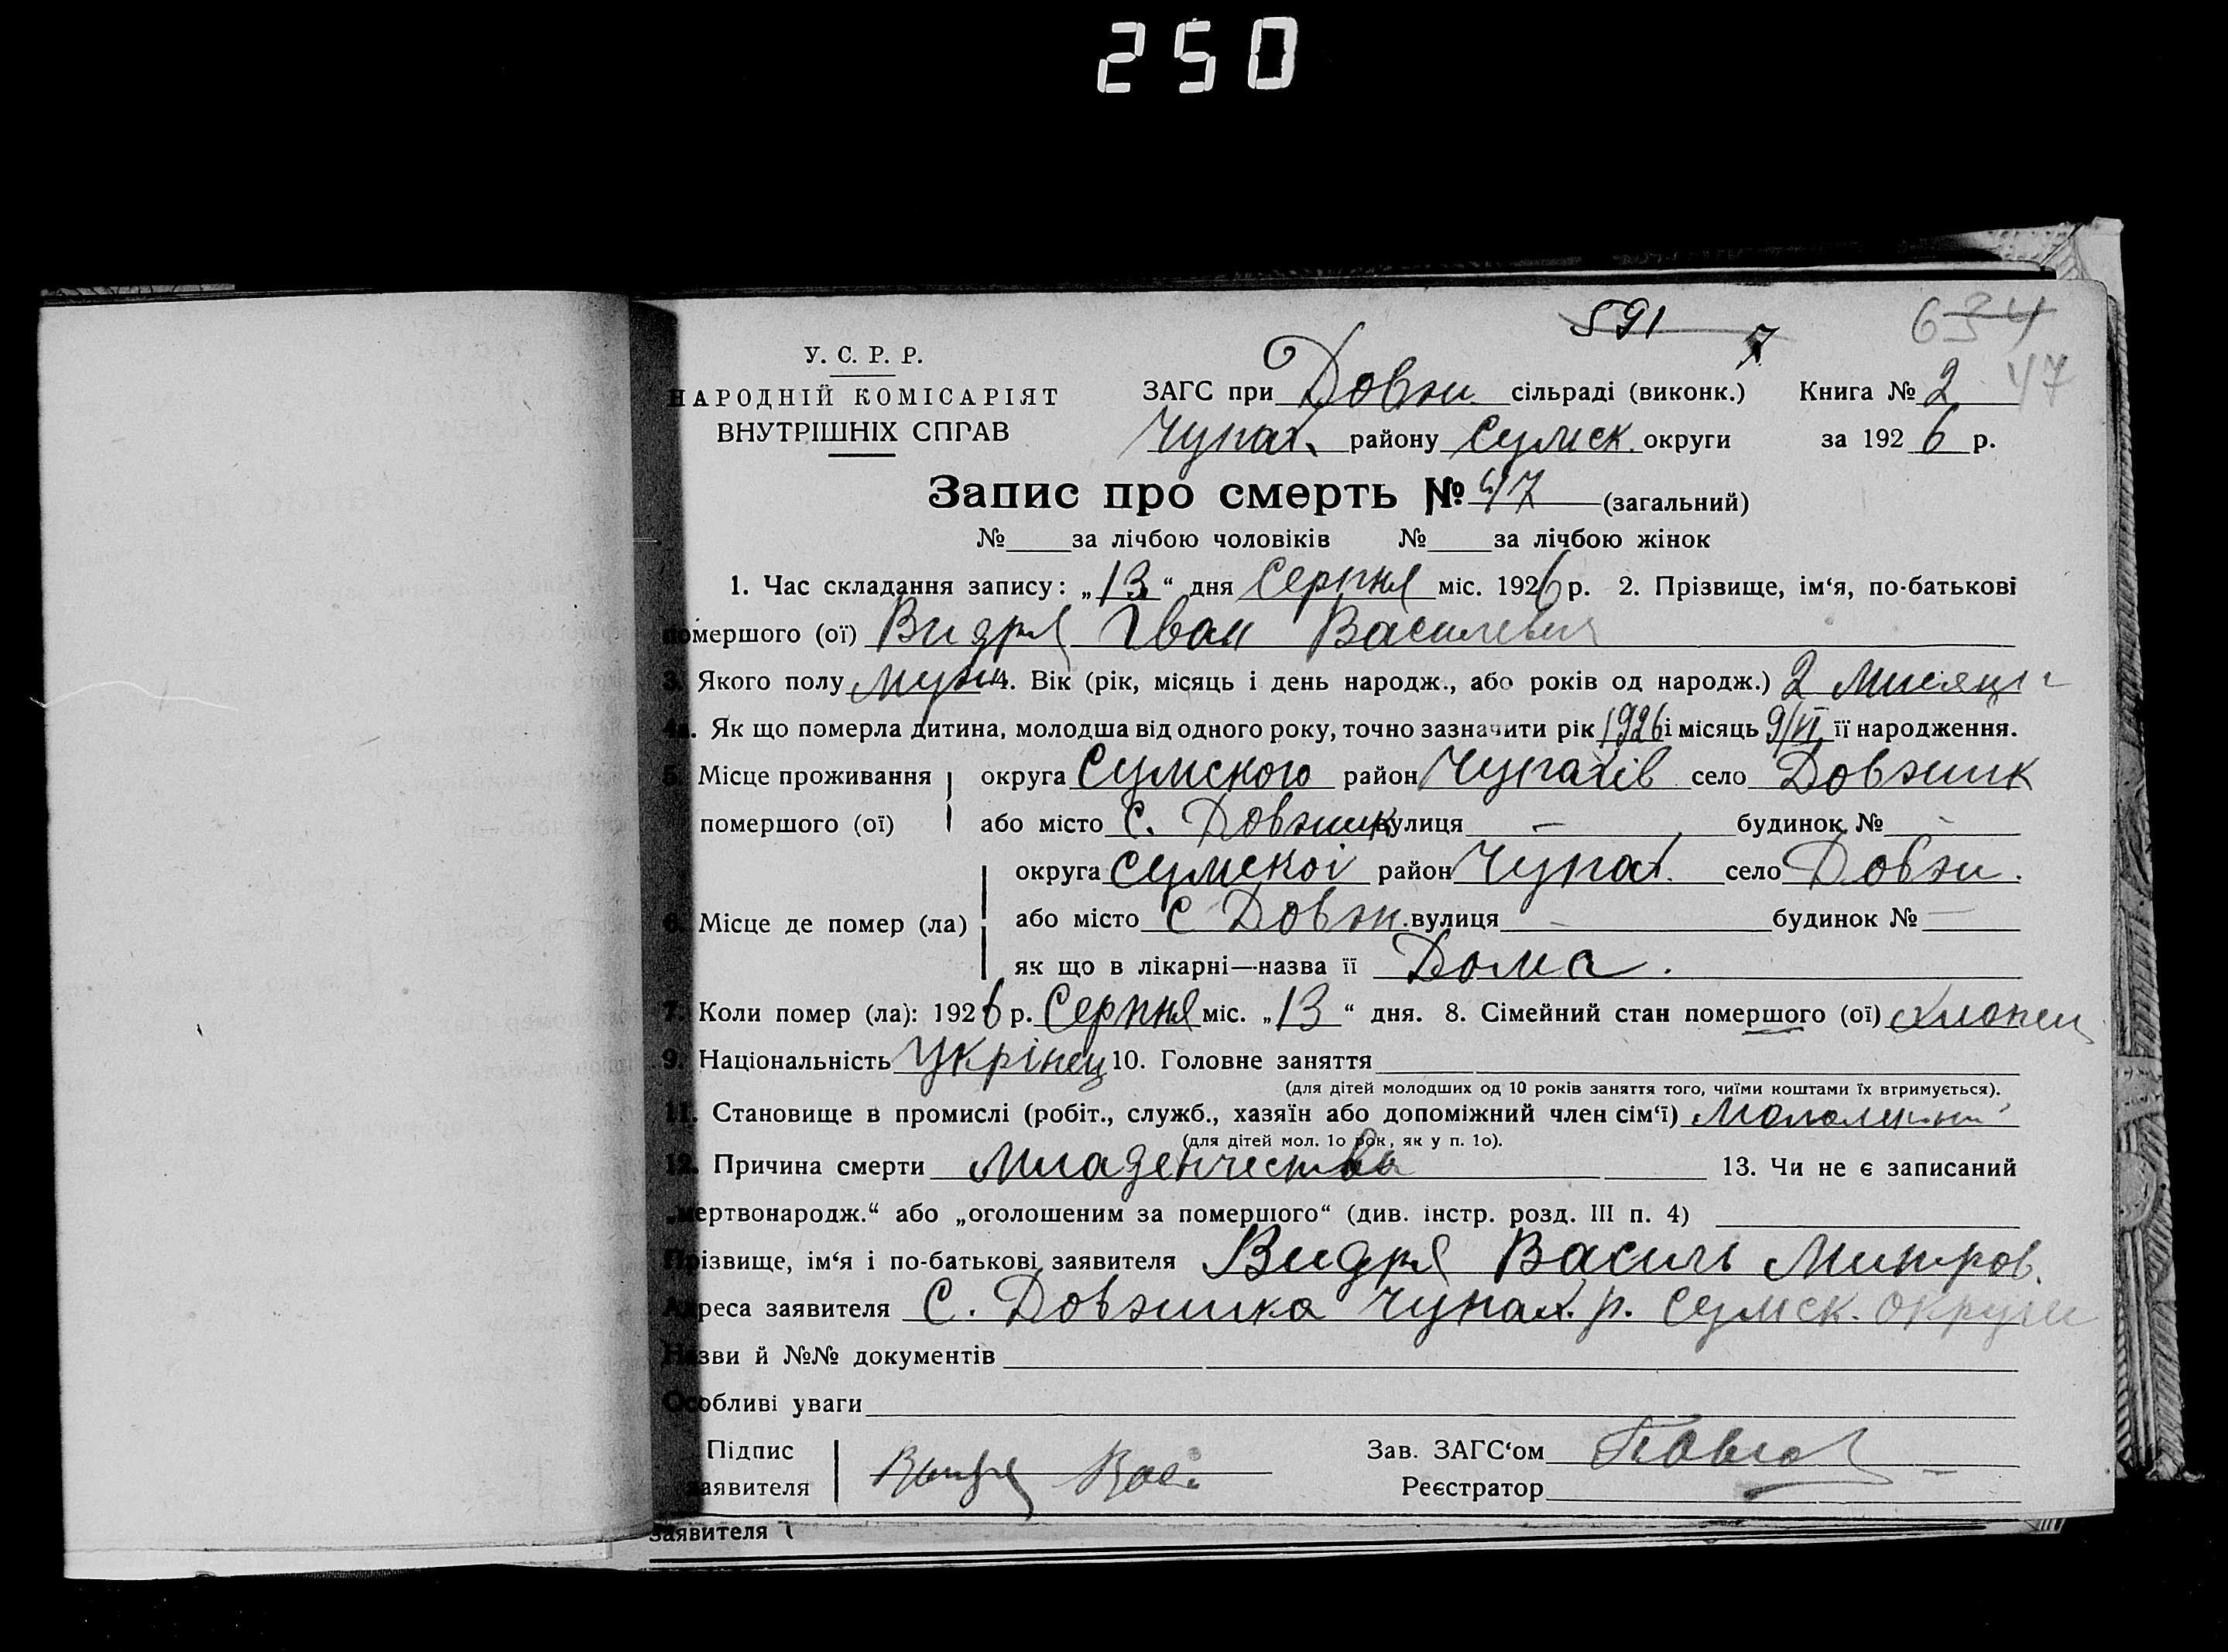 250
591 7 634
47
У. С. Р. Р.
НАРОДНІЙ КОМІСАРІЯТ
ВНУТРІШНІХ СПРАВ
ЗАГС при Довжи. сільраді (виконк.) Книга № 2
Чупах. району Сумск. округи за 1926 р.
Запис про смерть № 47 (загальний)
№ за лічбою чоловіків № за лічбою жінок
1. Час складання запису: „13“ дня Серпня міс. 1926 р. 2. Прізвище, ім‘я, по-батькові
помершого (ої) Видря Іван Василевич
3. Якого полу муж. 4. Вік (рік, місяць і день народж., або років од народж.) 2 мисяці
4а. Як що померла дитина, молодша від одного року, точно зазначити рік 1926 і місяць 9/VI її народження.
5. Місце проживання округа Сумского район Чупахів село Довжик
помершого (ої) або місто С. Довжик вулиця — будинок № —
округа Сумскої район Чупах. село Довжи.
6. Місце де помер (ла) або місто С Довж. вулиця — будинок № —
як що в лікарні—назва її Дома.
7. Коли помер (ла): 1926 р. Серпня міс. „13“ дня. 8. Сімейний стан помершого (ої) хлопец
9. Національність Укрінец 10. Головне заняття
(для дітей молодших од 10 років заняття того, чиїми коштами їх втримується).
11. Становище в промислі (робіт., служб., хазяїн або допоміжний член сім‘ї)
(для дітей мол. 1о рок, як у п. 1о).
12. Причина смерти младенчества 13. Чи не є записаний
„мертвонародж.“ або „оголошеним за помершого“ (див. інстр. розд. III п. 4)
Прізвище, ім‘я і по-батькові заявителя Видря Василь Митров.
Адреса заявителя С. Довжика Чупах. р. Сумск. округи
Назви й №№ документів
Особливі уваги
Підпис
заявителя Видря Вас. Зав. ЗАГС‘ом
Реєстратор
заявителя